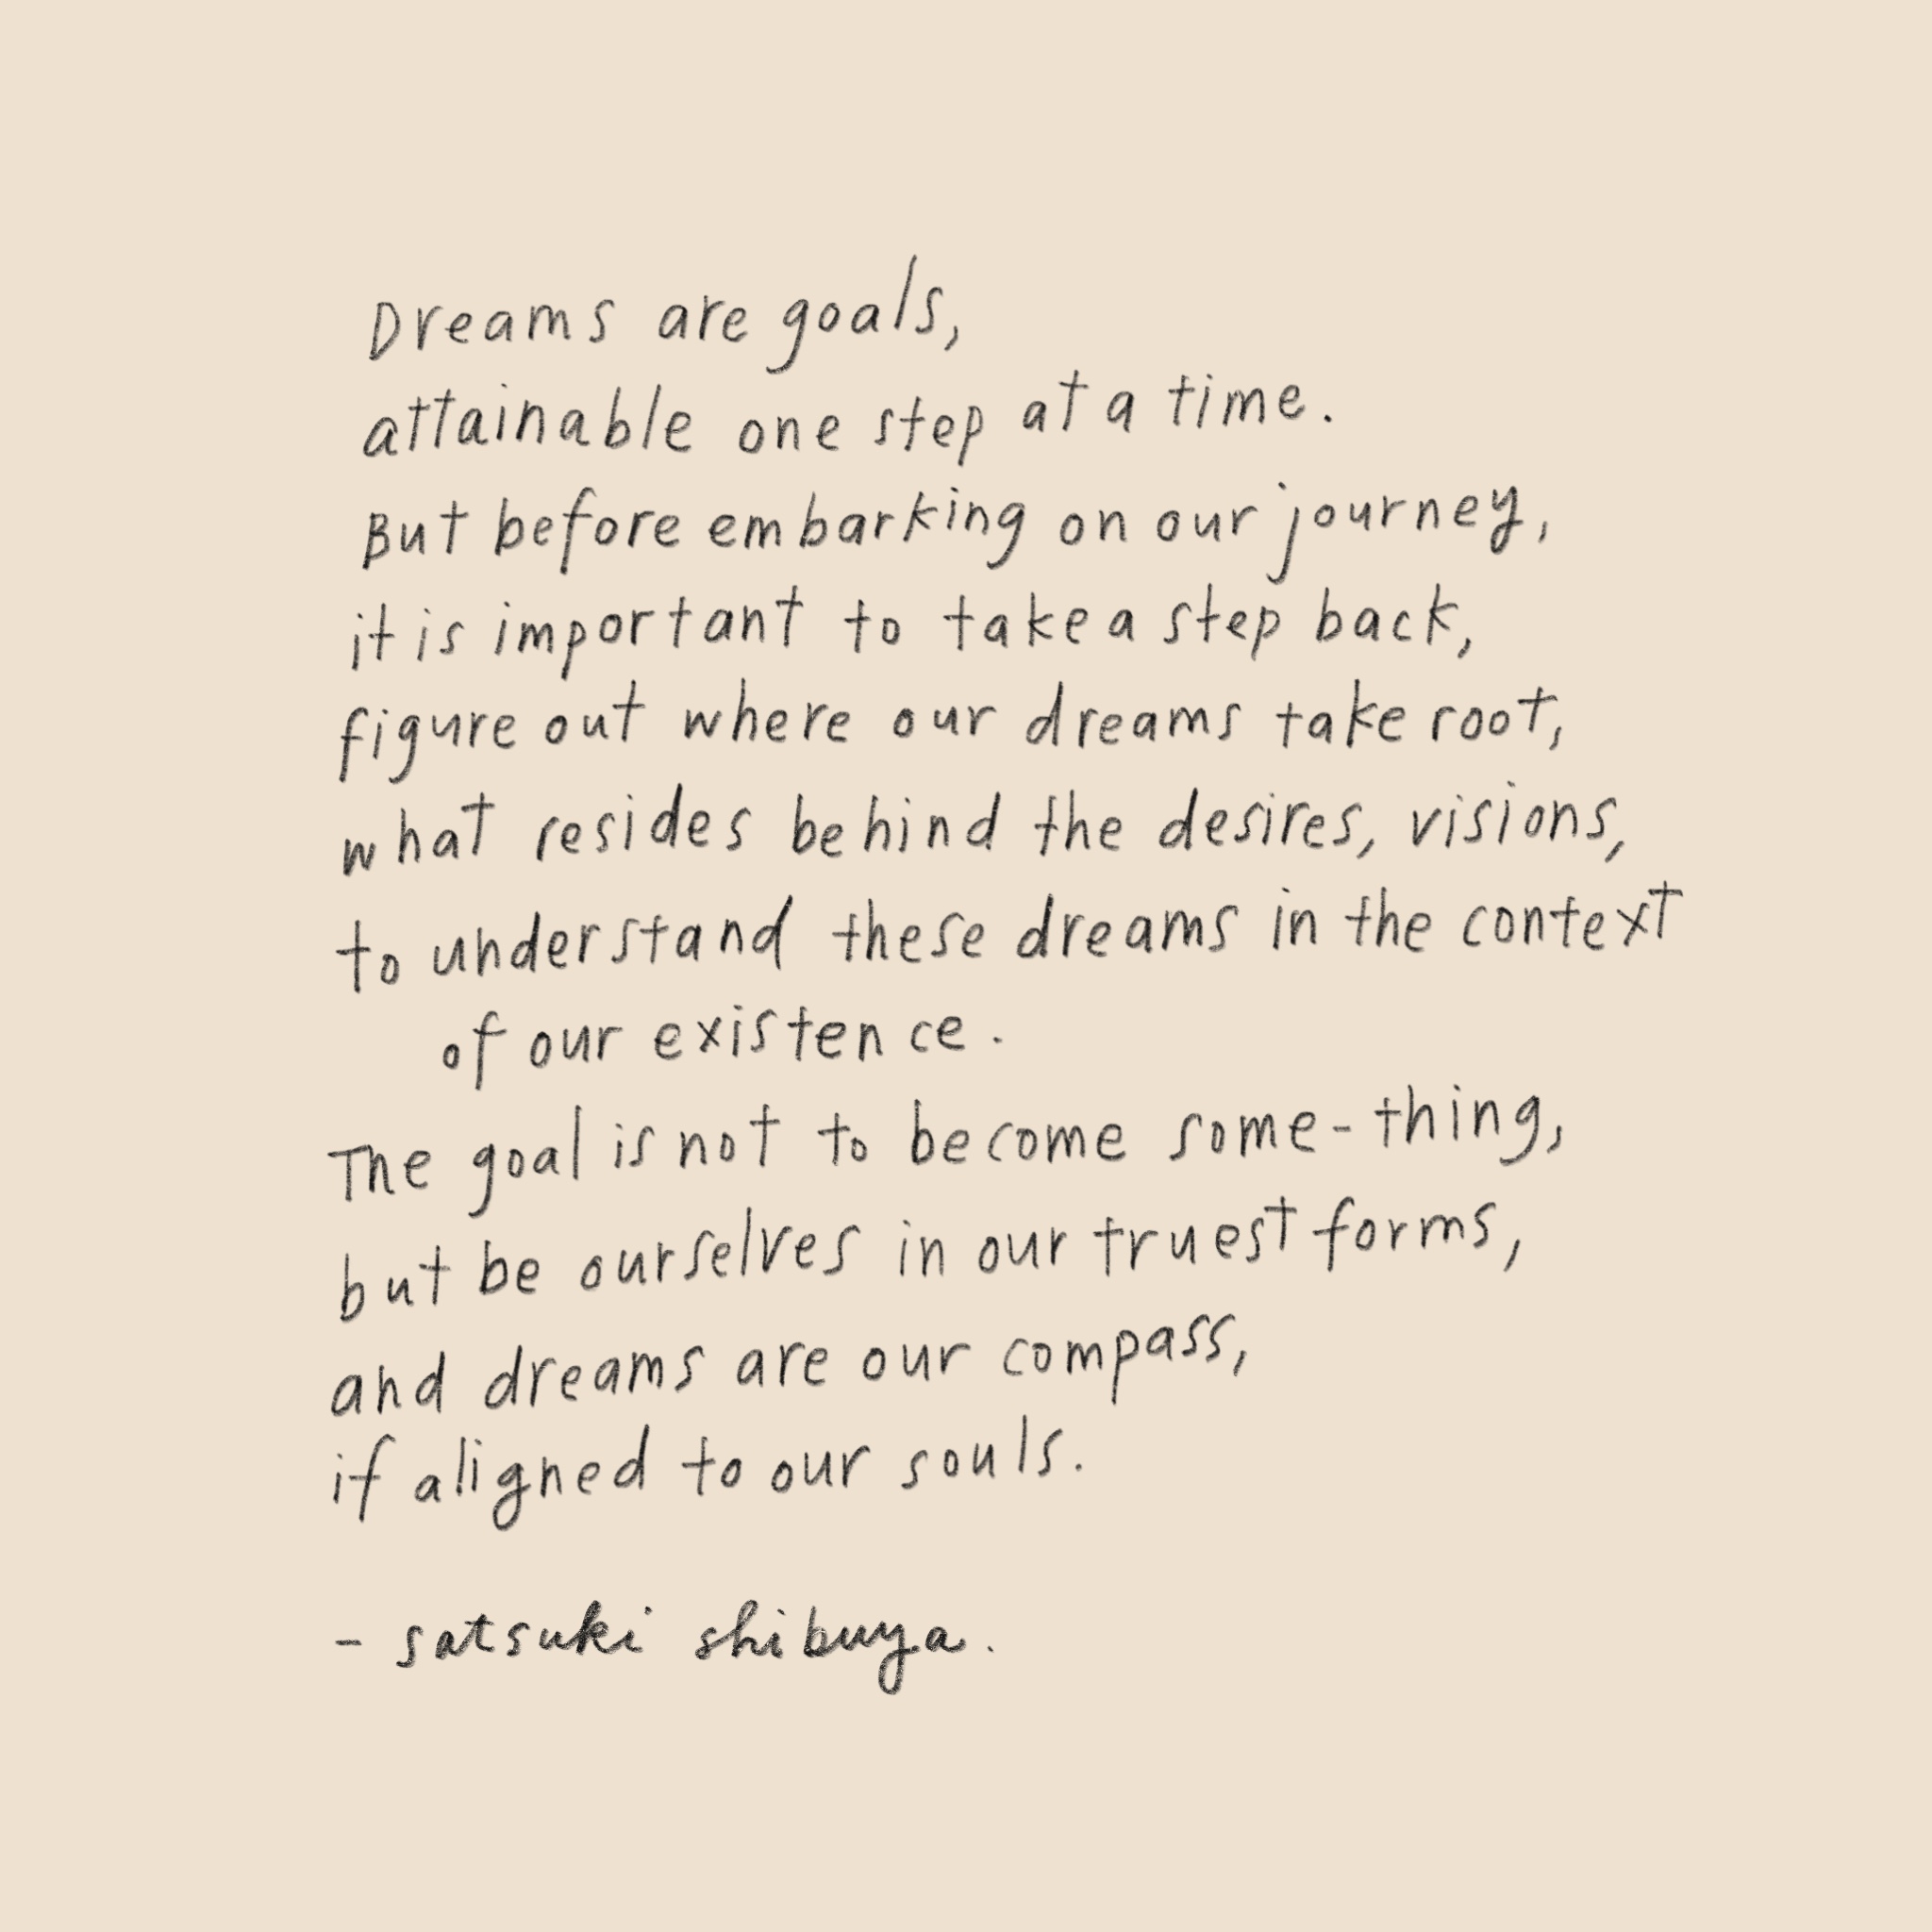 Dreams are goals,
attainable one step at a time.
But before embarking on our journey,
it is important to take a step back,
figure out where our dreams take root,
what resides behind the desires, visions,
to understand these dreams in the context
of our existence.
The goal is not to become some-thing,
but be ourselves in our truest forms,
and dreams are our compass,
if aligned to our souls.
- satsuki shibuya.